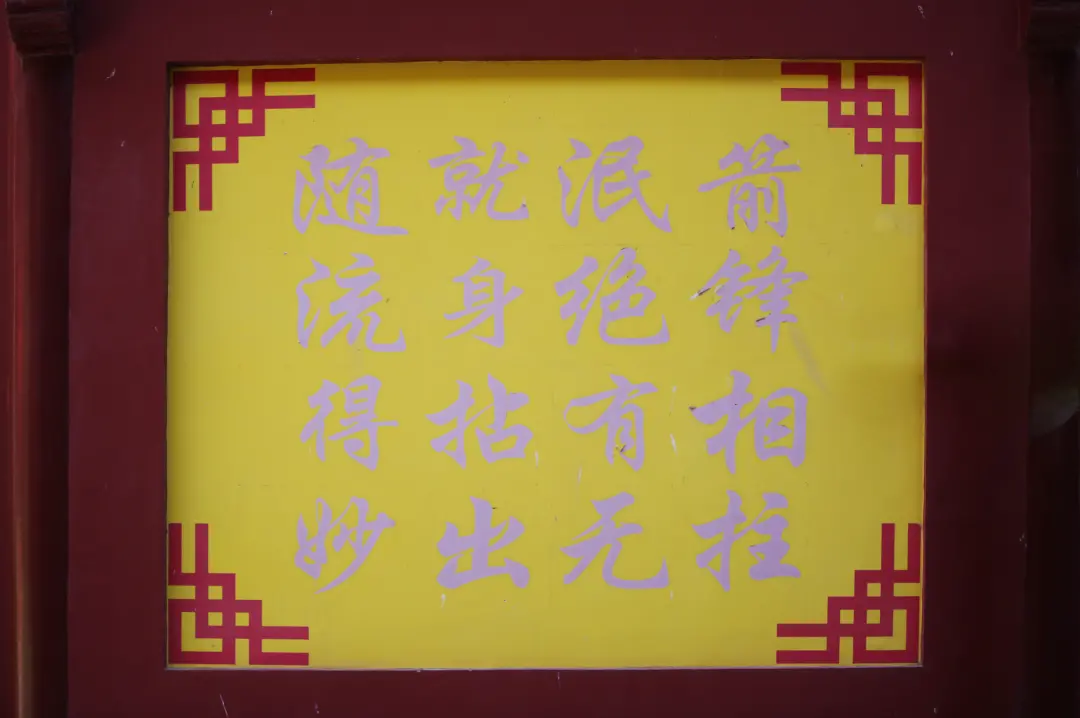 箭锋相拄
泯绝有无
就身拈出
随流得妙